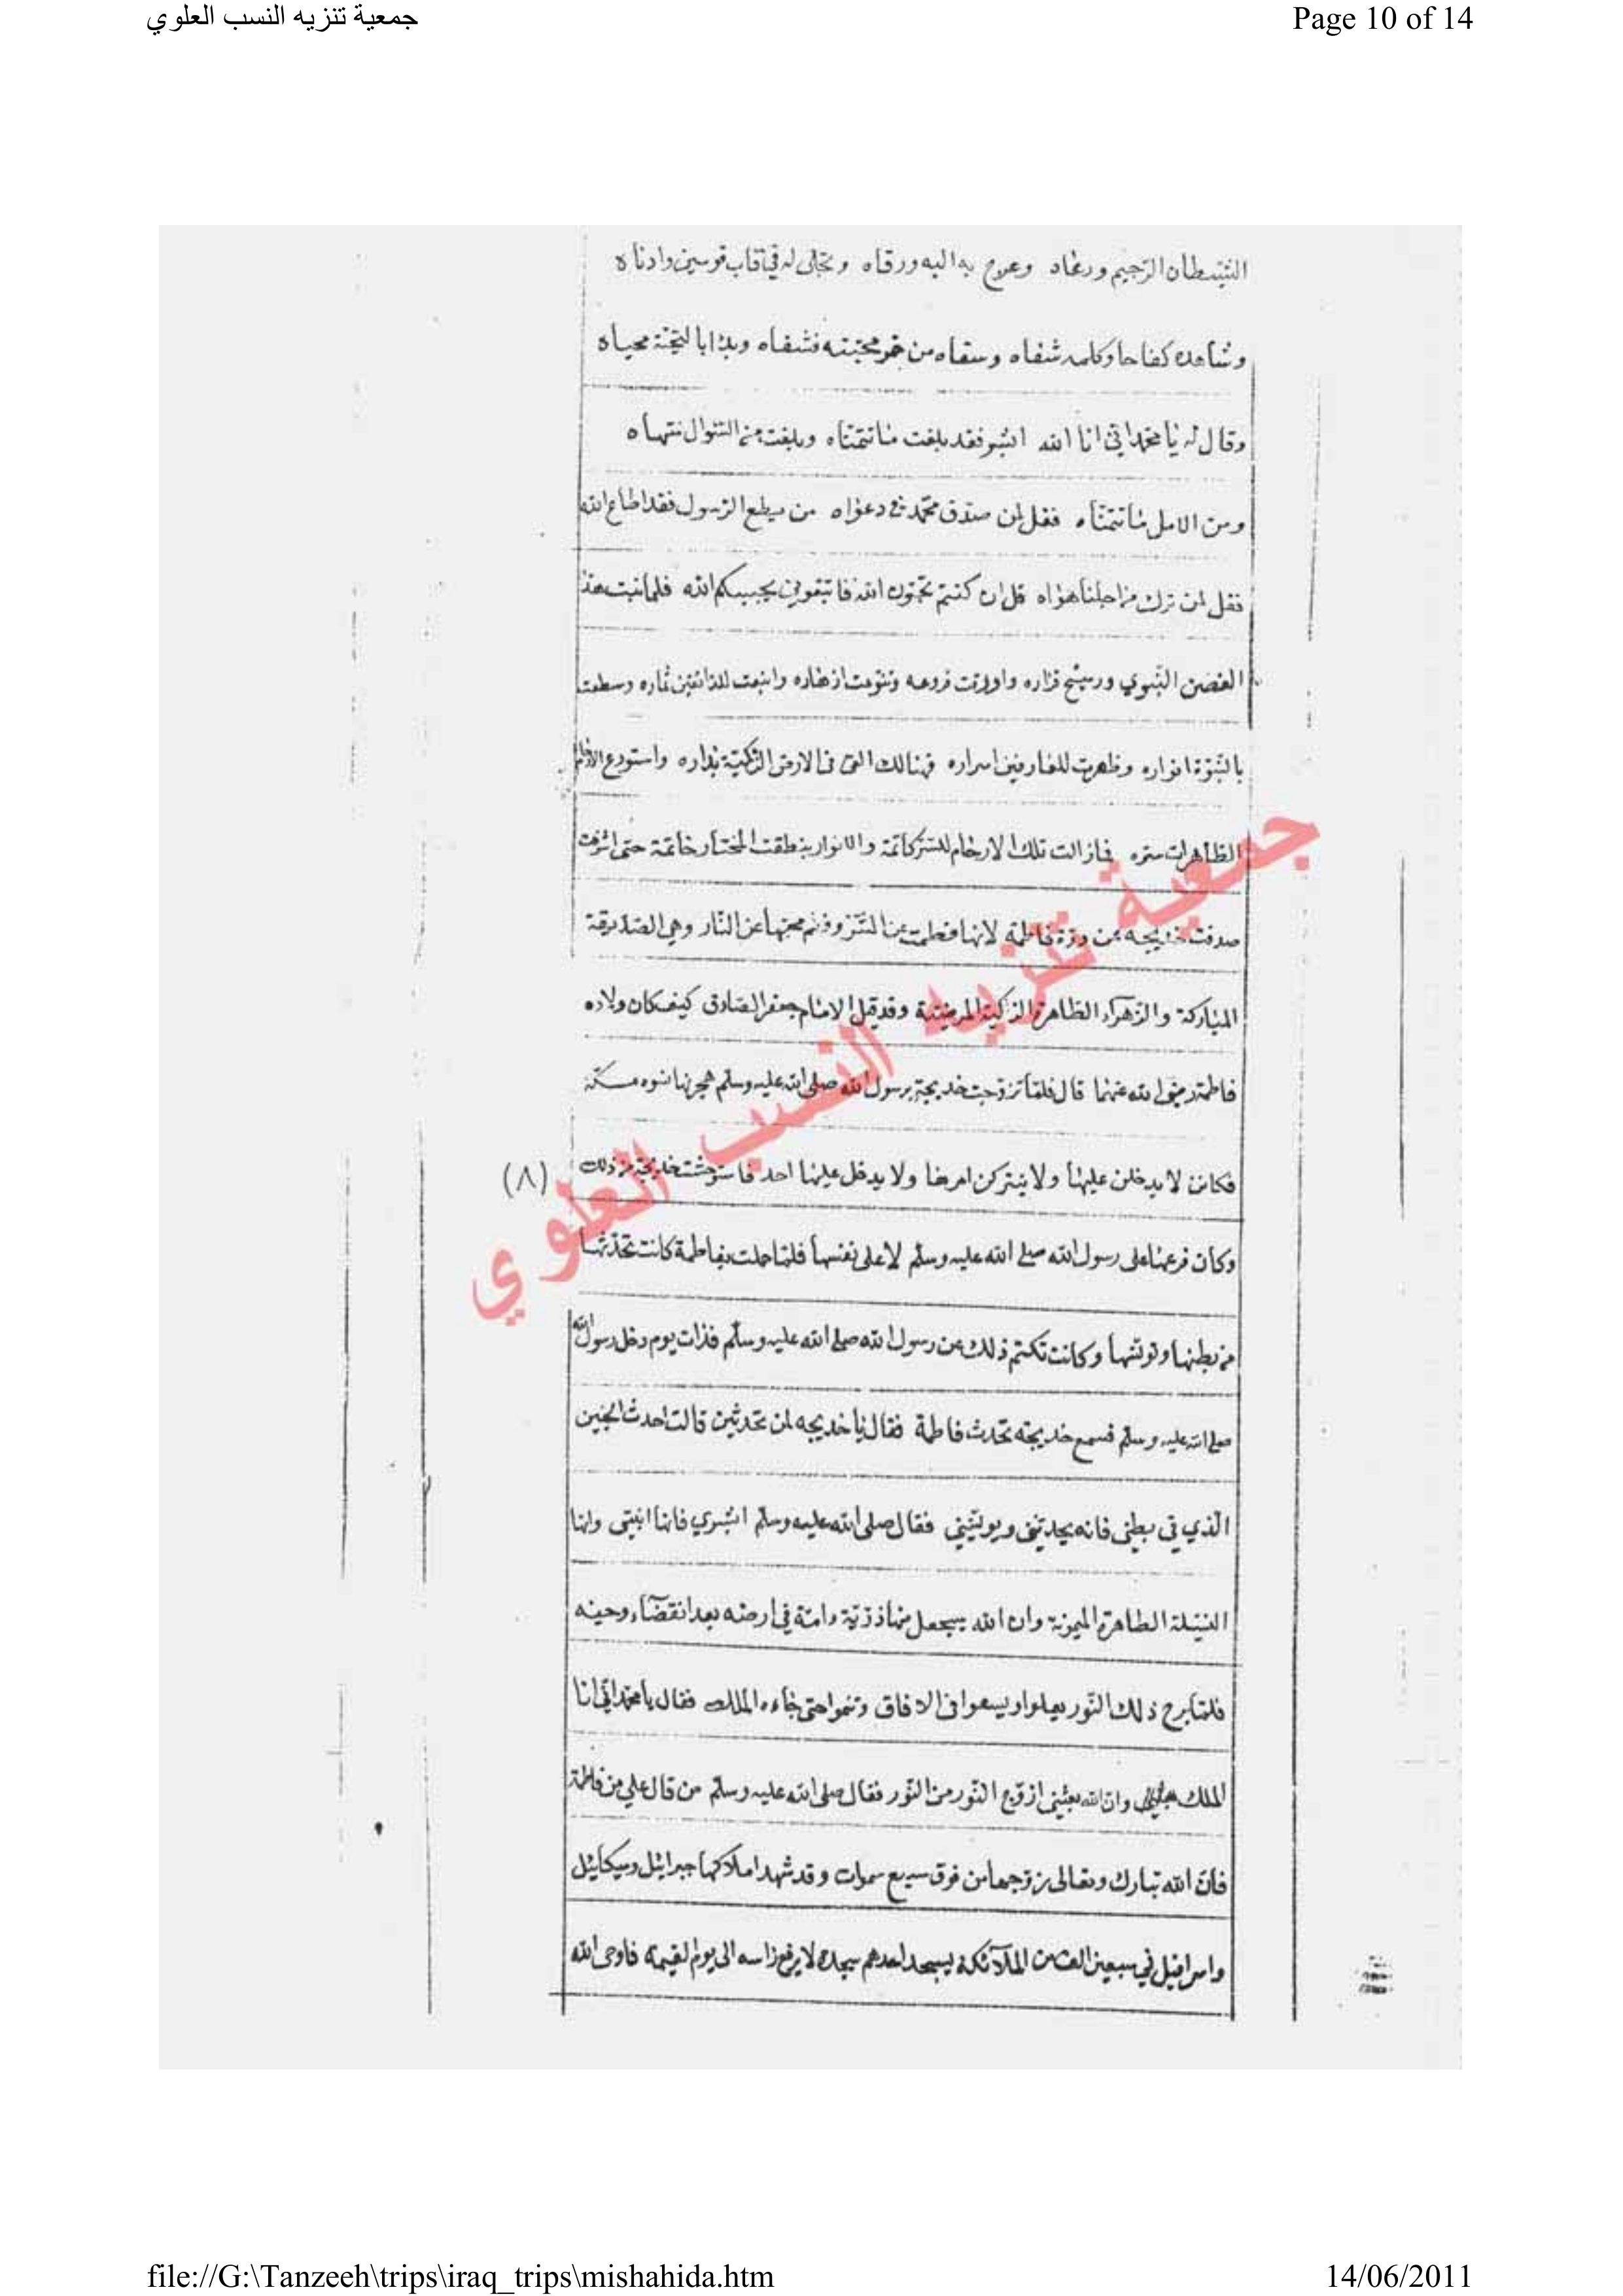 جمعية تنزيه النسب العلوي
Page 10 of 14
الشيطان الرجيم ورعاه وعرج به اليه ورقاه وتجلى له في قاب قوسين وادناه
وشاهده كفاحا وكلمه شفاه وسقاه من خمر محبته فشفاه وبدا بالتحية محياه
وقال له يا محمد اني انا الله ابشر فقد بلغت ما تتمناه وبلغت من السئوال منتهاه
ومن الامل ما تتمناه فقل لمن صدق محمد في دعواه من يطع الرسول فقد اطاع الله
فقل لمن ترك من اجلنا هواه قل ان كنتم تحبون الله فاتبعوني يحببكم الله فلما نبت هذا
الغصن النبوي ورسخ قراره واورقت فروعه وتنوعت ازهاره واينعت للذائقين ثماره وسطعت
بالنبوة انواره وظهرت للعارفين اسراره فهنالك القى في الارض الزكية بذاره واستودع الارحام
الطاهرات سره فما زالت تلك الارحام للسر كاتمة والانوار نطقت المختار خاتمة حتى اشرقت
صدفت خديجه عن درة فاطمة لانها فطمت عن محبها عن النار وهي الصديقة
المباركة والزهراء الطاهرة الزكية المرضية وقد قيل الامام جعفر الصادق كيف كان ولاده
فاطمة رضي الله عنهما قال فلما تزوجت خديجة برسول الله صلى الله عليه وسلم هجرنها نسوه مكة
فكانن لا يدخلن عليها ولا يتركن امرها ولا يدخل عليها احد فاستوحشت خديجة من ذلك
(٨)
وكان فزعها على رسول الله صلى الله عليه وسلم لا على نفسها فلما حملت بفاطمة كانت تحدثها
من بطنها وتونسها وكانت تكتم ذلك عن رسول الله صلى الله عليه وسلم فذات يوم دخل رسول الله
صلى الله عليه وسلم فسمع خديجة تحدث فاطمة فقال يا خديجه لمن تحدثين قالت احدث الجنين
الذي في بطني فانه يحدثني ويونسني فقال صلى الله عليه وسلم ابشري فانها ابنتي وانها
النسلة الطاهرة الميمونة وان الله سيجعل منها ذرية وامة في ارضه بعد انقضاء وحيه
فلما برح ذلك النور يعلوا ويسموا في الافاق وتنموا حتى جاءه الملك فقال يا محمد اني انا
الملك وان الله بعثني ازوج النور من النور فقال صلى الله عليه وسلم من قال علي من فاطمة
فان الله تبارك وتعالى زوجها من فوق سبع سموات وقد شهد املاكها جبرائيل وميكائيل
واسرافيل في سبعين الف من الملآئكة يسجد احدهم سجدة لا يرفع راسه الى يوم القيمة فاوحى الله
جمعية تنزيه النسب العلوي
file://G:\Tanzeeh\trips\iraq_trips\mishahida.htm
14/06/2011